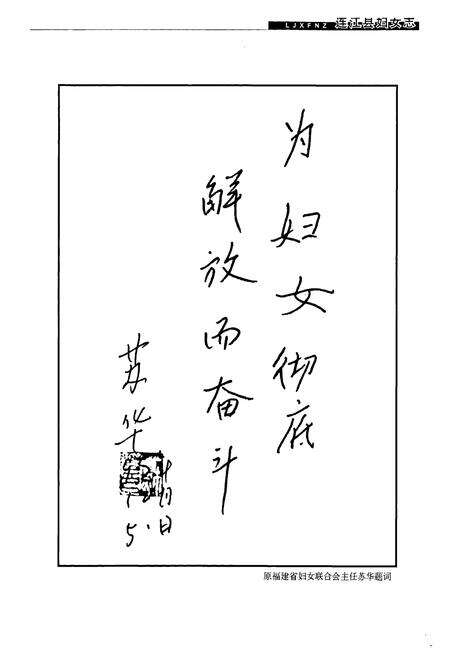 LJXFNZ 连江县妇女志
为妇女彻底
解放而奋斗
苏华
5.日
原福建省妇女联合会主任苏华题词